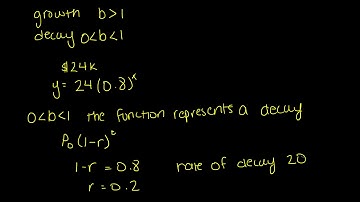 growth b>1
decay 0<b<1
$24k
y=24(0.8)ˣ
0<b<1 the function represents a decay
P₀(1-r)ᵗ
1-r = 0.8 rate of decay 20
r = 0.2